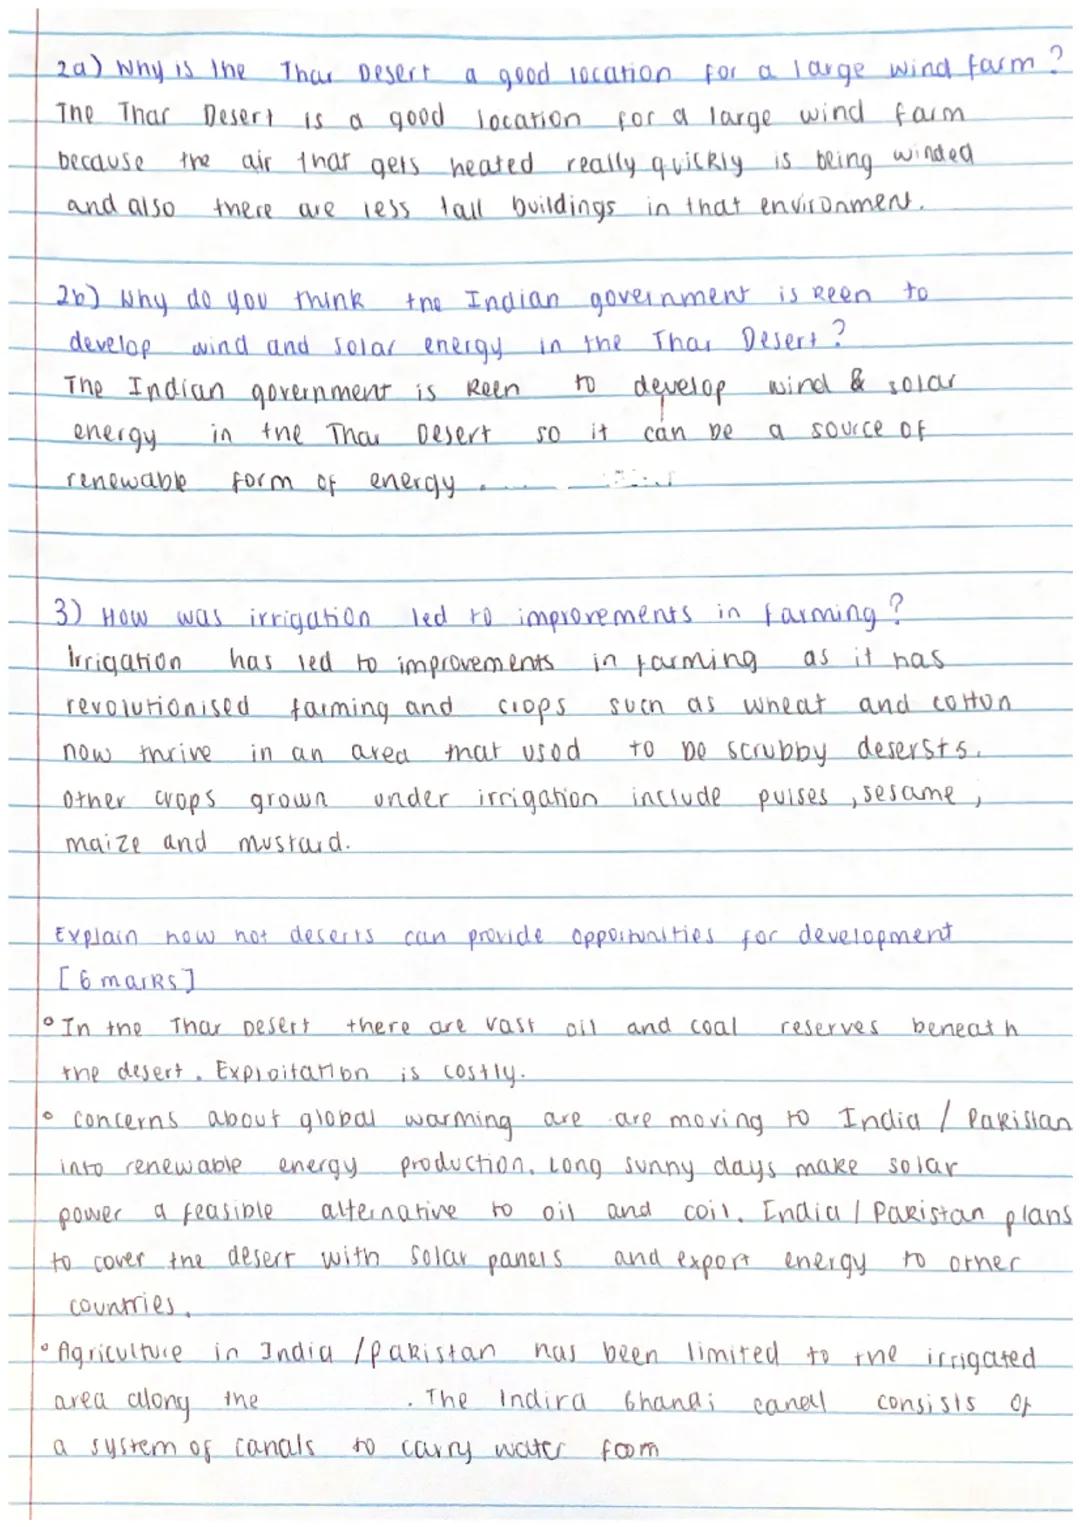 2a) Why is the Thar Desert a good location for a large wind farm?
The Thar Desert is a good location for a large wind farm
because the air that gets heated really quickly is being winded
and also there are less tall buildings in that environment.
2b) Why do you think the Indian government is keen to
develop wind and solar energy in the Thar Desert?
The Indian government is keen to develop wind & solar
energy in the Thar Desert so it can be a source of
renewable form of energy.
3) How was irrigation led to improvements in farming?
Irrigation has led to improvements in farming as it has
revolutionised farming and crops such as wheat and cotton
now thrive in an area that used to be scrubby desersts.
Other crops grown under irrigation include pulses, sesame,
maize and mustard.
Explain how hot deserts can provide opportunities for development
[6 marks]
° In the Thar Desert there are vast oil and coal reserves beneath
the desert. Exploitation is costly.
° concerns about global warming are are moving to India / Pakistan
into renewable energy production. Long sunny days make solar
power a feasible alternative to oil and coil. India / Pakistan plans
to cover the desert with solar panels and export energy to other
countries.
° Agriculture in India / pakistan has been limited to the irrigated
area along the . The Indira Ghandi canall consists of
a system of canals to carry water foom